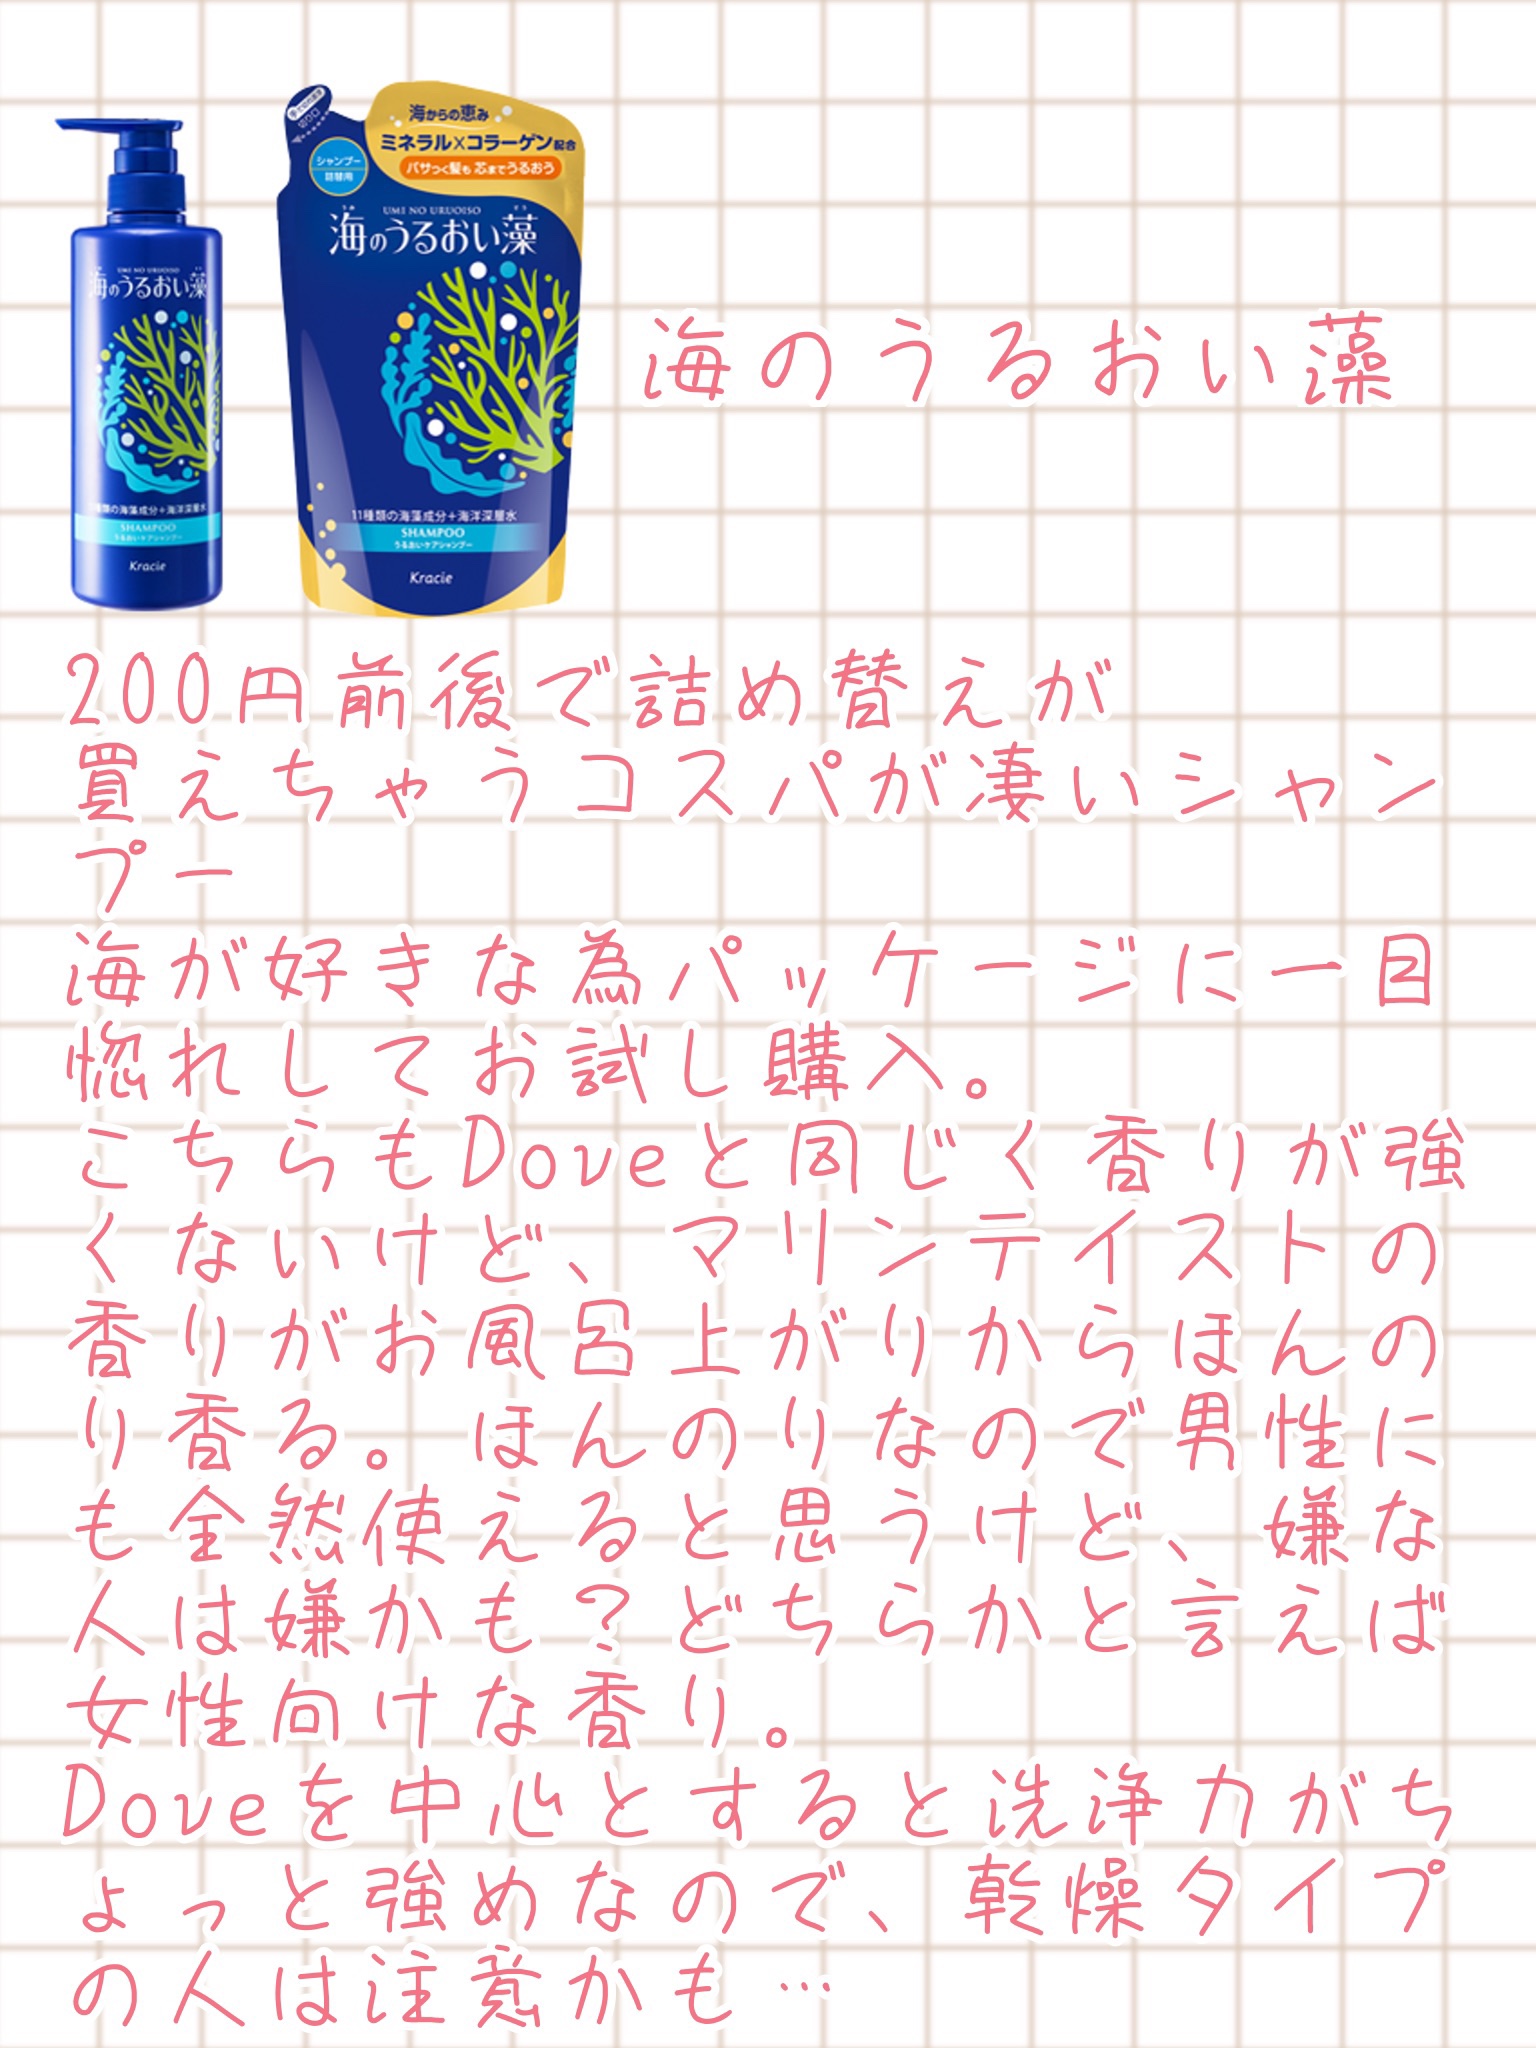 UMI NO URUOISO
海のうるおい藻
種類の海藻成分+海洋深層水
SHAMPOO
うるおいケアシャンプー
Kracie
切り口
シャンプー
詰替用
海からの恵み
ミネラル×コラーゲン配合
パサつく髪も 芯までうるおう
UMI NO URUOISO
海のうるおい藻
11種類の海藻成分+海洋深層水
SHAMPOO
うるおいケアシャンプー
Kracie
海のうるおい藻
200円前後で詰め替えが
買えちゃうコスパが凄いシャン
プー
海が好きな為パッケージに一目
惚れしてお試し購入。
こちらもDoveと同じく香りが強
くないけど、マリンテイストの
香りがお風呂上がりからほんの
り香る。ほんのりなので男性に
も全然使えると思うけど、嫌な
人は嫌かも?どちらかと言えば
女性向けな香り。
Doveを中心とすると洗浄力がち
ょっと強めなので、乾燥タイプ
の人は注意かも…